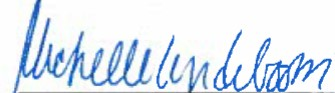 Michelle Lindeboom